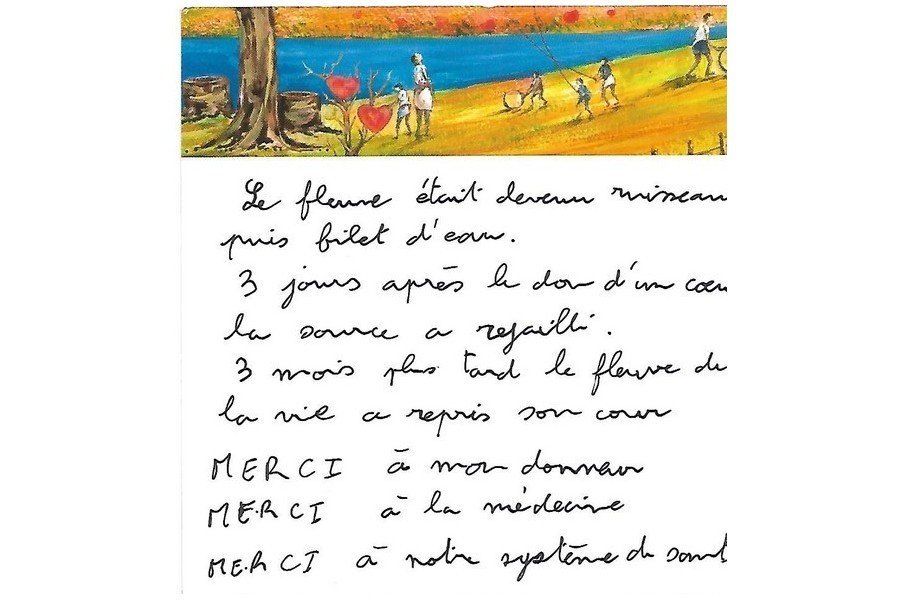 Le fleuve était devenu ruisseau
puis filet d'eau.
3 jours après le don d'un cœu
la source a rejailli.
3 mois plus tard le fleuve de
la vie a repris son cour
MERCI à mon donneur
MERCI à la médecine
MERCI à notre système de sant